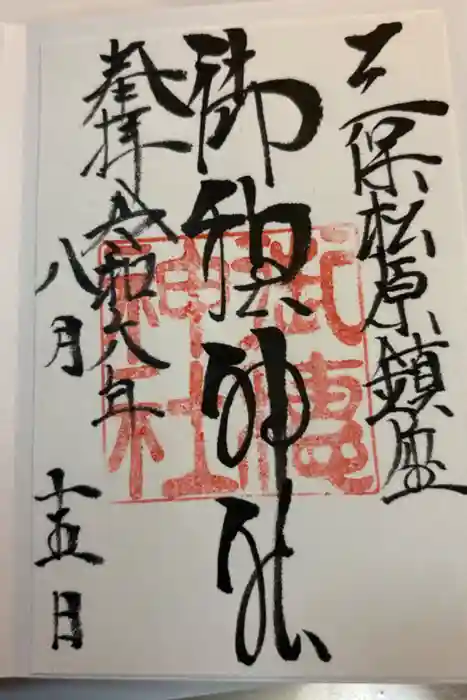 三保松原鎮座
御穂神社
奉拝 令和六年
八月 十五日
御穂神社